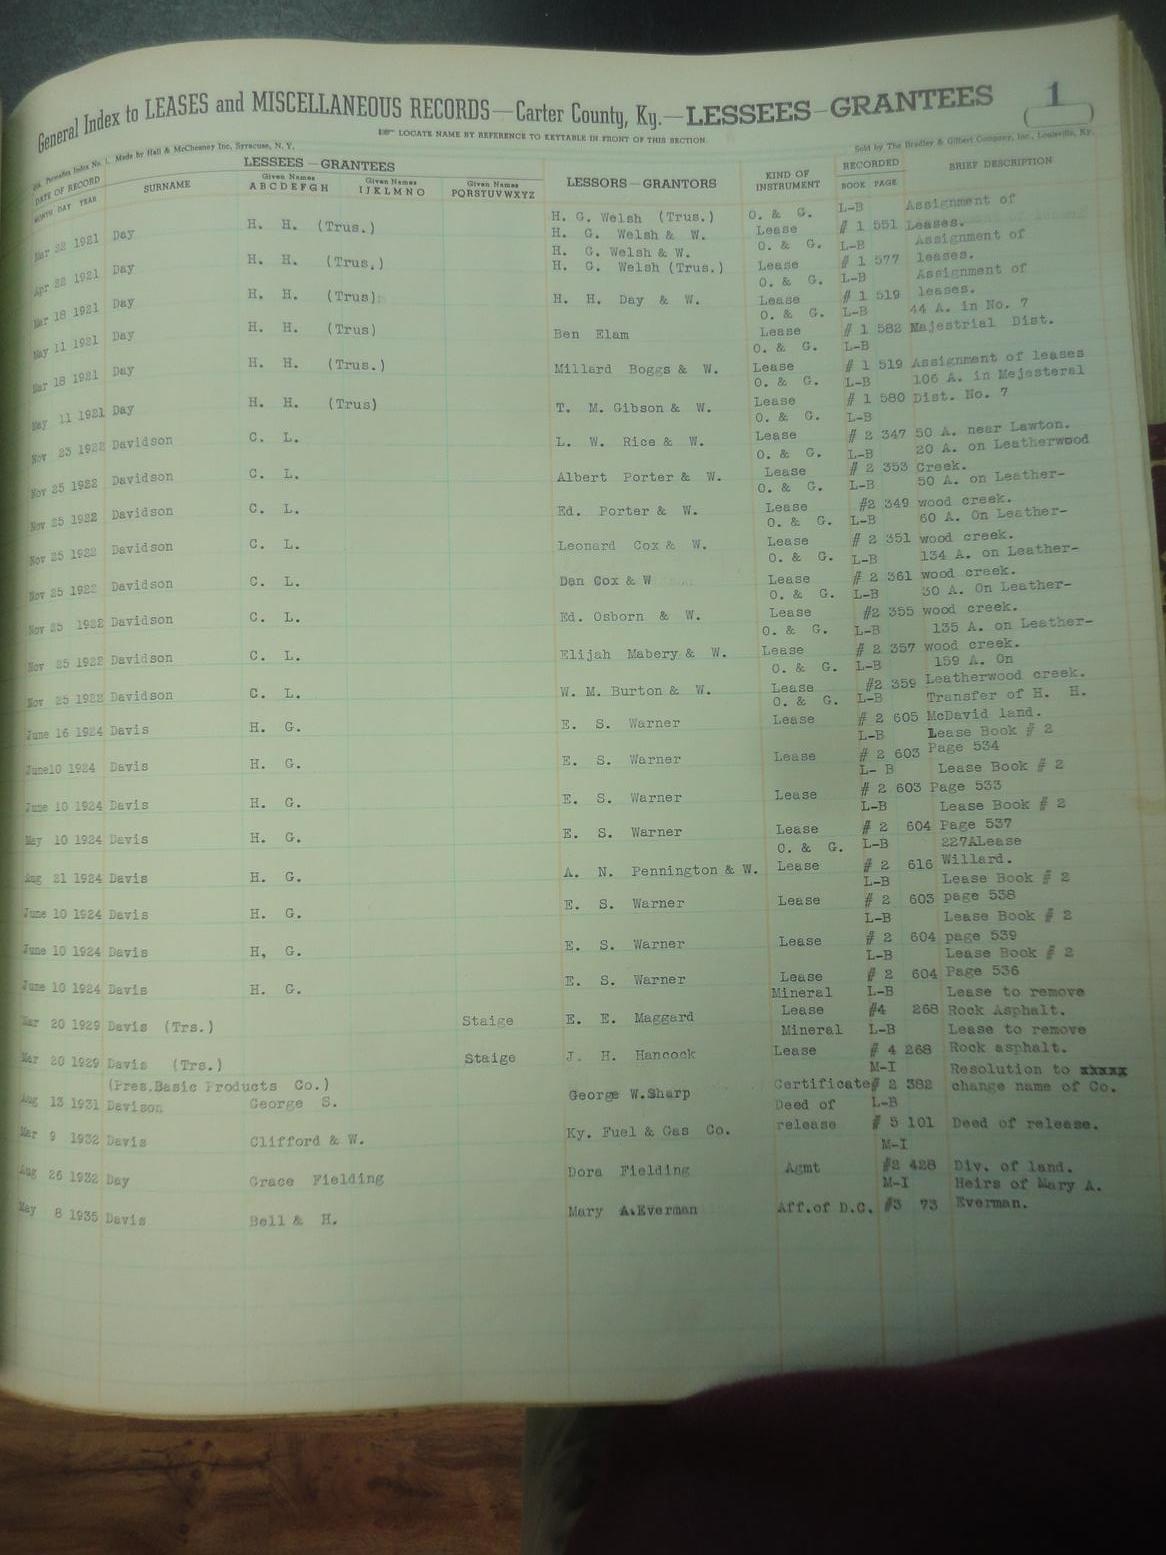 General Index to LEASES and MISCELLANEOUS RECORDS—Carter County, Ky.—LESSEES—GRANTEES 1
LOCATE NAME BY REFERENCE TO KEYTABLE IN FRONT OF THIS SECTION
Made by Hall & McChesney Inc. Syracuse, N. Y. Sold by The Bradley & Gilbert Company, Inc., Louisville, Ky.
DATE OF RECORD LESSEES—GRANTEES LESSORS—GRANTORS KIND OF INSTRUMENT RECORDED BRIEF DESCRIPTION
MONTH DAY YEAR SURNAME Given Names ABCDEFGH Given Names IJKLMNO Given Names PQRSTUVWXYZ BOOK PAGE
H. G. Welsh (Trus.) O. & G. L-B Assignment of
Mar 22 1921 Day H. H. (Trus.) H. G. Welsh & W. Lease # 1 551 Leases.
H. G. Welsh & W. O. & G. L-B Assignment of
Apr 22 1921 Day H. H. (Trus.) H. G. Welsh (Trus.) Lease # 1 577 leases.
O. & G. L-B Assignment of
Mar 18 1921 Day H. H. (Trus) H. H. Day & W. Lease # 1 519 leases.
O. & G. L-B 44 A. in No. 7
May 11 1921 Day H. H. (Trus) Ben Elam Lease # 1 582 Majestrial Dist.
O. & G. L-B
Mar 18 1921 Day H. H. (Trus.) Millard Boggs & W. Lease # 1 519 Assignment of leases
O. & G. L-B 106 A. in Mejesteral
May 11 1921 Day H. H. (Trus) T. M. Gibson & W. Lease # 1 580 Dist. No. 7
O. & G. L-B
Nov 23 1922 Davidson C. L. L. W. Rice & W. Lease # 2 347 50 A. near Lawton.
O. & G. L-B 20 A. on Leatherwood
Nov 25 1922 Davidson C. L. Albert Porter & W. Lease # 2 353 Creek.
O. & G. L-B 50 A. on Leather-
Nov 25 1922 Davidson C. L. Ed. Porter & W. Lease #2 349 wood creek.
O. & G. L-B 60 A. On Leather-
Nov 25 1922 Davidson C. L. Leonard Cox & W. Lease # 2 351 wood creek.
O. & G. L-B 134 A. on Leather-
Nov 25 1922 Davidson C. L. Dan Cox & W Lease # 2 361 wood creek.
O. & G. L-B 30 A. On Leather-
Nov 25 1922 Davidson C. L. Ed. Osborn & W. Lease #2 355 wood creek.
O. & G. L-B 135 A. on Leather-
Nov 25 1922 Davidson C. L. Elijah Mabery & W. Lease # 2 357 wood creek.
O. & G. L-B 159 A. On
Nov 25 1922 Davidson C. L. W. M. Burton & W. Lease #2 359 Leatherwood creek.
O. & G. L-B Transfer of H. H.
June 16 1924 Davis H. G. E. S. Warner Lease # 2 605 McDavid land.
L-B Lease Book # 2
June10 1924 Davis H. G. E. S. Warner Lease # 2 603 Page 534
L- B Lease Book # 2
June 10 1924 Davis H. G. E. S. Warner Lease # 2 603 Page 533
L-B Lease Book # 2
May 10 1924 Davis H. G. E. S. Warner Lease # 2 604 Page 537
O. & G. L-B 227ALease
Aug 21 1924 Davis H. G. A. N. Pennington & W. Lease # 2 616 Willard.
L-B Lease Book # 2
June 10 1924 Davis H. G. E. S. Warner Lease # 2 603 page 538
L-B Lease Book # 2
June 10 1924 Davis H, G. E. S. Warner Lease # 2 604 page 539
L-B Lease Book # 2
June 10 1924 Davis H. G. E. S. Warner Lease # 2 604 Page 536
Mineral L-B Lease to remove
Mar 20 1929 Davis (Trs.) Staige E. E. Maggard Lease #4 268 Rock Asphalt.
Mineral L-B Lease to remove
Mar 20 1929 Davis (Trs.) Staige J. H. Hancock Lease # 4 268 Rock asphalt.
(Pres.Basic Products Co.) M-I Resolution to xxxxx
Aug 13 1931 Davison George S. George W.Sharp Certificate # 2 382 change name of Co.
Deed of L-B
Mar 9 1932 Davis Clifford & W. Ky. Fuel & Gas Co. release # 5 101 Deed of release.
M-I
Aug 26 1932 Day Grace Fielding Dora Fielding Agmt #2 428 Div. of land.
M-I Heirs of Mary A.
May 8 1935 Davis Bell & H. Mary A.Everman Aff.of D.C. #3 73 Everman.